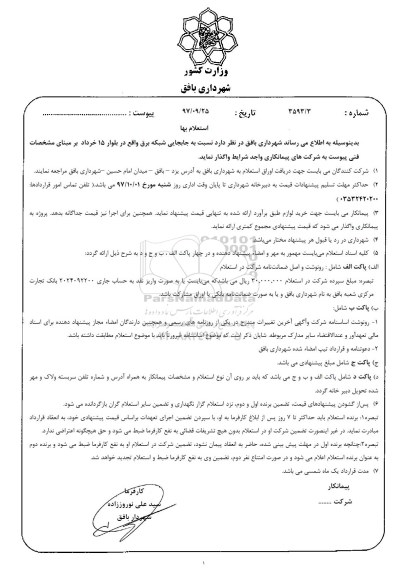 وزارت کشور
شهرداری بافق
شماره : ۳۵۹۳/۳ تاریخ : ۹۷/۰۹/۲۵ پیوست :
استعلام بها
بدینوسیله به اطلاع می رساند شهرداری بافق در نظر دارد نسبت به جابجایی شبکه برق واقع در بلوار ۱۵ خرداد بر مبنای مشخصات
فنی پیوست به شرکت های پیمانکاری واجد شرایط واگذار نماید.
۱) شرکت کنندگان می بایست جهت دریافت اوراق استعلام به شهرداری بافق به آدرس یزد – بافق – میدان امام حسین –شهرداری بافق مراجعه نمایند.
۲) حداکثر مهلت تسلیم پیشنهادات قیمت به دبیرخانه شهرداری تا پایان وقت اداری روز شنبه مورخ ۹۷/۱۰/۰۱ می باشد.( تلفن تماس امور قراردادها:
۰۳۵۳۲۴۲۰۲۰۰ )
۳) پیمانکار می بایست جهت خرید لوازم طبق برآورد ارائه شده به تنهایی قیمت پیشنهاد نماید. همچنین برای اجرا نیز قیمت جداگانه بدهد. پروژه به
پیمانکاری واگذار می شود که قیمت پیشنهادی مجموع کمتری ارائه نماید.
۴) شهرداری در رد یا قبول هر پیشنهاد مختار می‌باشد.
۵) کلیه اسناد استعلام می‌بایست مهمور به مهر و امضاء پیشنهاد دهنده و در چهار پاکت الف ، ب و ج و د به شرح ذیل ارائه گردد:
الف) پاکت الف شامل : رونوشت و اصل ضمانت‌نامه شرکت در استعلام
تبصره: مبلغ سپرده شرکت در استعلام ۳۰,۰۰۰,۰۰۰ ریال می باشدکه می‌بایست یا به صورت واریز نقد به حساب جاری ۲۰۲۴۰۹۲۲۰۰ بانک تجارت
مرکزی شعبه بافق به نام شهرداری بافق و یا به صورت ضمانت‌نامه بانکی یا اوراق مشارکت باشد.
ب) پاکت ب شامل:
۱- رونوشت اساسنامه شرکت وآگهی آخرین تغییرات مندرج در یکی از روزنامه های رسمی و همچنین دارندگان امضاء مجاز پیشنهاد دهنده برای اسناد
مالی تعهدآور و عندالاقتضاء سایر مدارک مربوطه. شایان ذکر است که موضوع اساسنامه باید با موضوع استعلام مطابقت داشته باشد.
۲- دعوتنامه و قرارداد تیپ امضاء شده شهرداری بافق
ج) پاکت ج شامل مبلغ پیشنهادی می باشد.
د) پاکت د شامل پاکت الف و ب و ج می باشد که باید بر روی آن نوع استعلام و مشخصات پیمانکار به همراه آدرس و شماره تلفن سربسته ولاک و مهر
تحویل دبیر خانه گردد.
۶) پس‌از گشودن پیشنهادهای قیمت، تضمین برنده اول و دوم، نزد استعلام گزار نگهداری و تضمین سایر استعلام گران بازگردانده می شود.
تبصره۱: برنده استعلام باید حداکثر تا ۷ روز پس از ابلاغ کارفرما به او، با سپردن تضمین اجرای تعهدات براساس قیمت پیشنهادی خود، به انعقاد قرارداد
مبادرت نماید. در غیر اینصورت تضمین شرکت او در استعلام بدون هیچ تشریفات قضائی به نفع کارفرما ضبط می شود و حق هیچگونه اعتراضی ندارد.
تبصره۲:چنانچه برنده اول در مهلت پیش بینی شده، حاضر به انعقاد پیمان نشود، تضمین شرکت در استعلام او به نفع کارفرما ضبط می شود و برنده دوم
به عنوان برنده استعلام اعلام می شود و در صورت امتناع نفر دوم، تضمین وی به نفع کارفرما ضبط و استعلام تجدید خواهد شد.
۷) مدت قرارداد یک ماه شمسی می باشد.
پیمانکار
شرکت ........
کارفرما
سید علی نوروززاده
شهردار بافق
۱